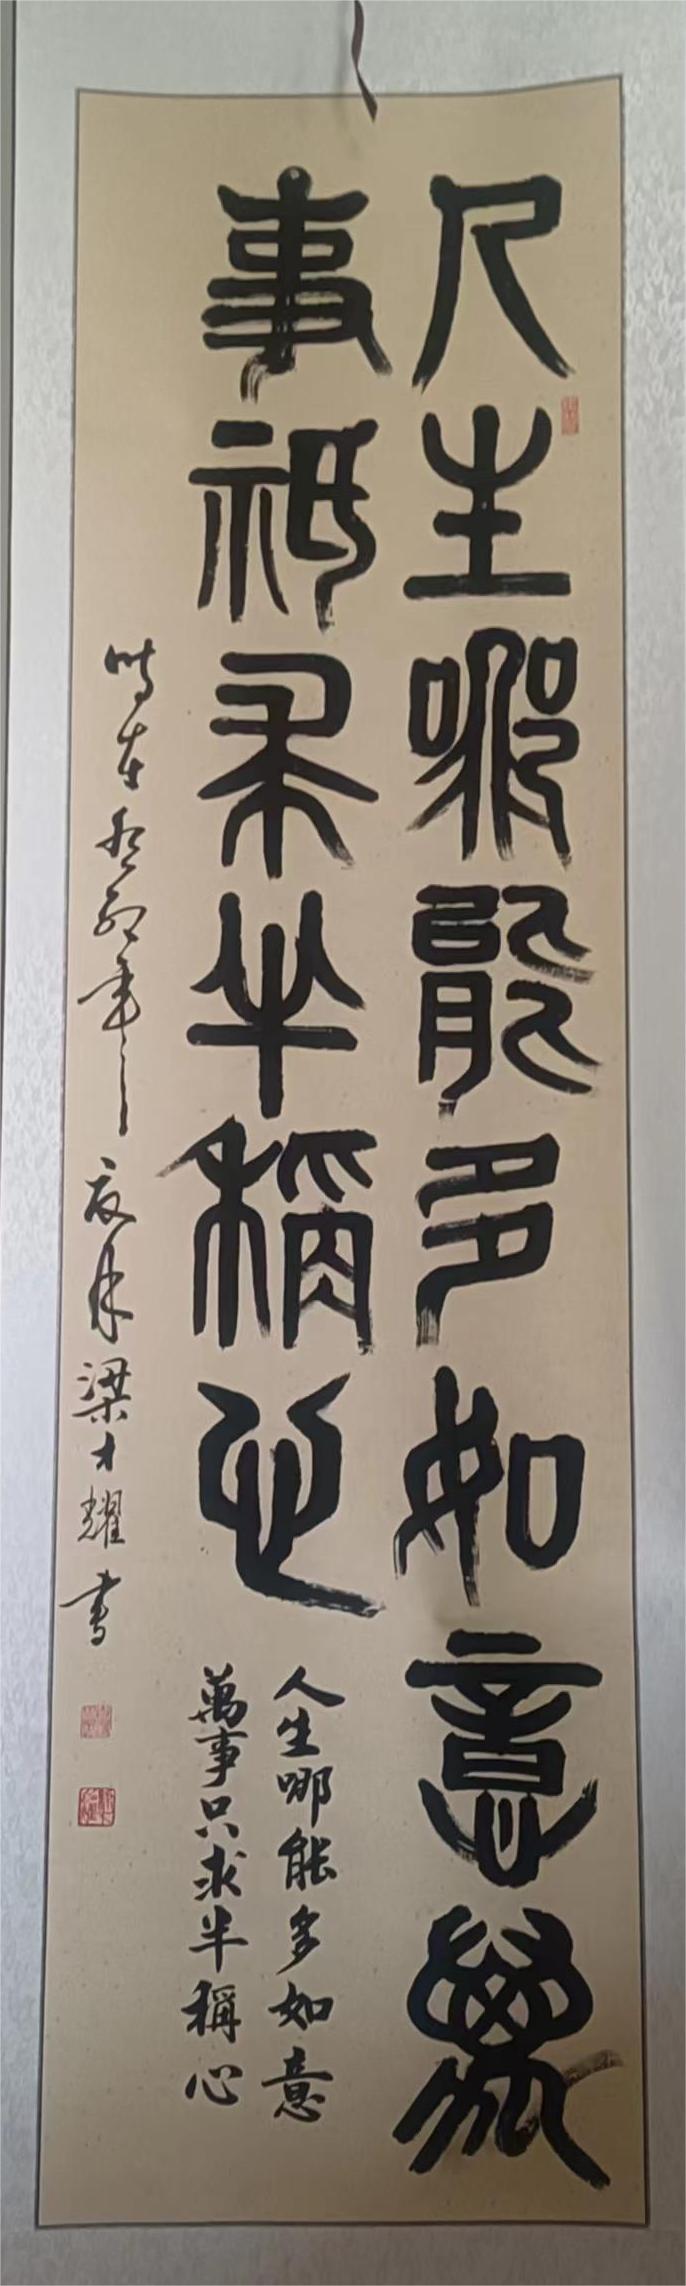 人生哪能多如意萬
事祇求半稱心
人生哪能多如意
萬事只求半稱心
時在癸卯年夏月梁才耀書